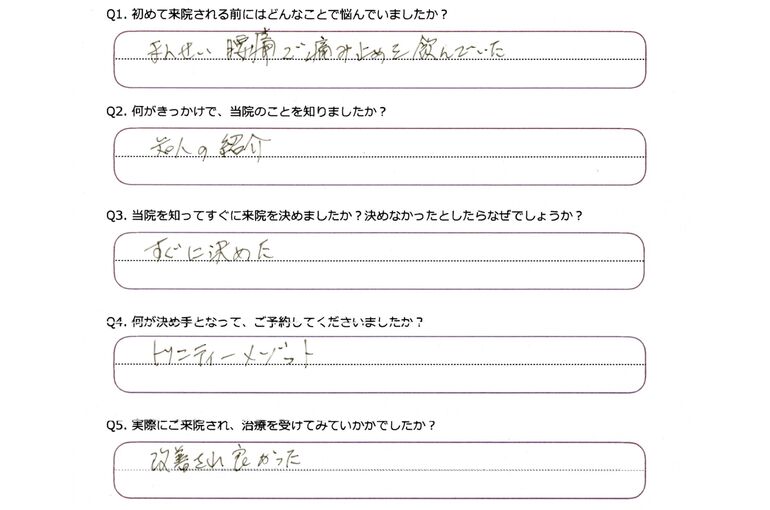 Q1. 初めて来院される前にはどんなことで悩んでいましたか？
まんせい 腰痛で痛み止めを飲んでいた
Q2. 何がきっかけで、当院のことを知りましたか？
知人の紹介
Q3. 当院を知ってすぐに来院を決めましたか？決めなかったとしたらなぜでしょうか？
すぐに決めた
Q4. 何が決め手となって、ご予約してくださいましたか？
トリニティーメゾット
Q5. 実際にご来院され、治療を受けてみていかかでしたか？
改善され良かった